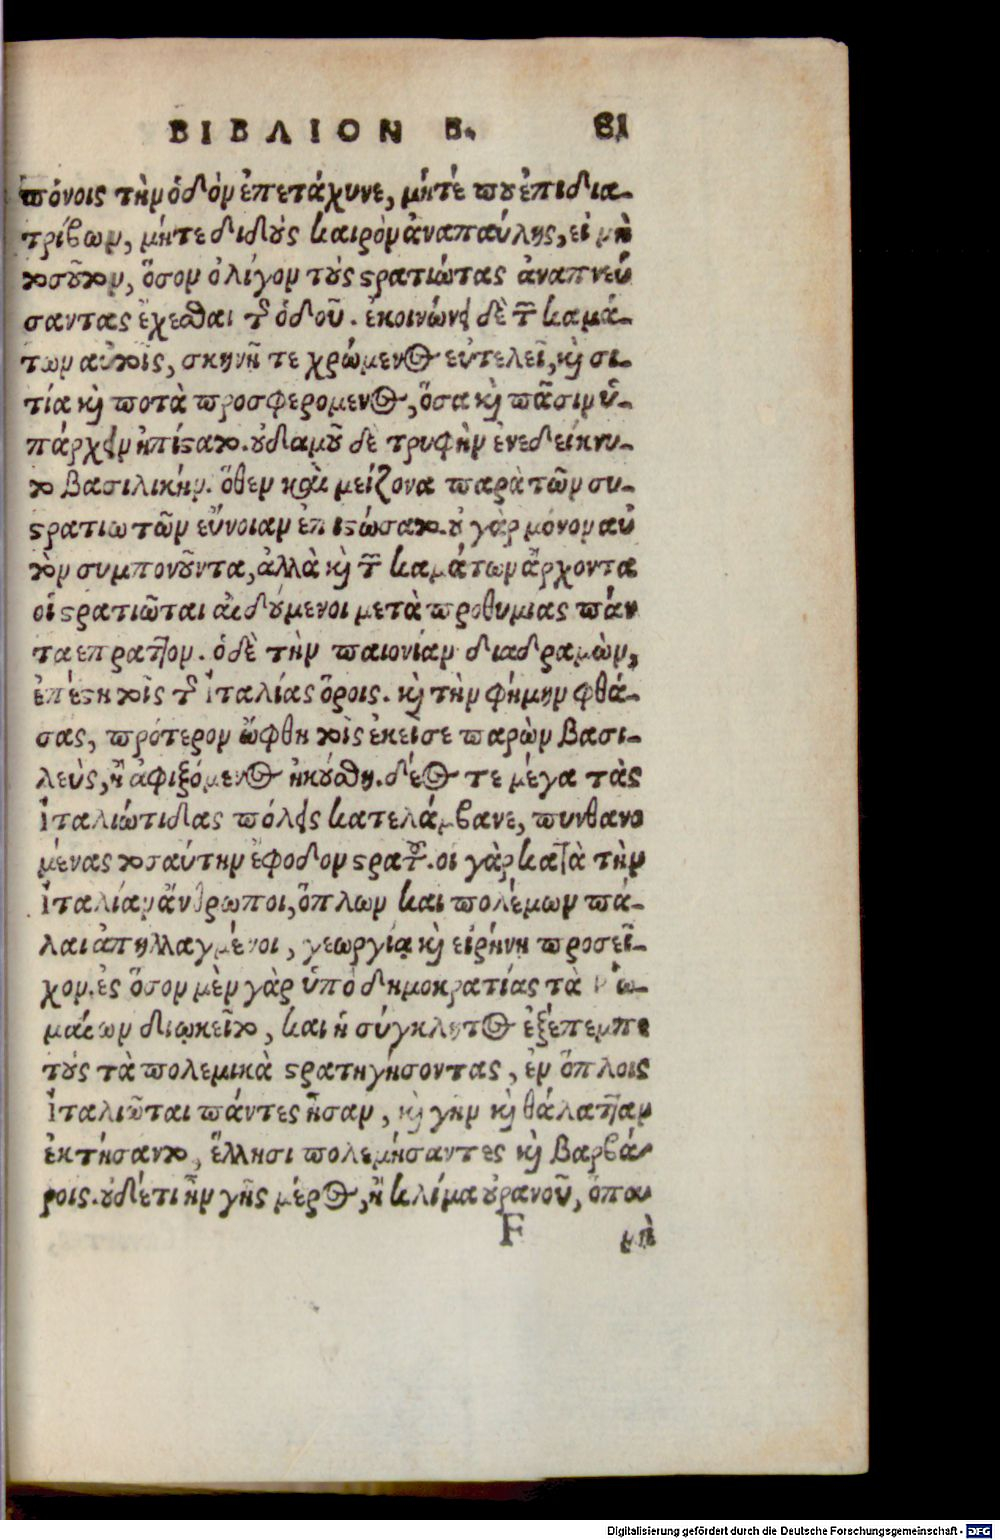 ΒΙΒΛΙΟΝ Β. 81
πόνοις τὴν ὁδὸν ἐπετάχυνε, μήτέ που ἐπιδια-
τρίβων, μήτε διδοὺς καιρὸν ἀναπαύλης, εἰ μὴ
τοσοῦτον, ὅσον ὀλίγον τοὺς στρατιώτας ἀναπνεύ
σαντας ἔχεσθαι τῆς ὁδοῦ. ἐκοινώνει δὲ τῶν καμά-
των αὐτοῖς, σκηνῇ τε χρώμενος εὐτελεῖ, καὶ σι-
τία καὶ ποτὰ προσφερόμενος, ὅσα καὶ πᾶσιν ὑ-
πάρχειν ἠπίστατο. οὐδαμοῦ δὲ τρυφὴν ἐνεδείκνυ-
το βασιλικήν. ὅθεν καὶ μείζονα παρὰ τῶν συ-
στρατιωτῶν εὔνοιαν ἐπιστώσατο. οὐ γὰρ μόνον αὐ
τὸν συμπονοῦντα, ἀλλὰ καὶ τῶν καμάτων ἄρχοντα
οἱ στρατιῶται αἰδούμενοι μετὰ προθυμίας πάν
τα ἔπραττον. ὁ δὲ τὴν παιονίαν διαδραμὼν,
ἐπέστη τοῖς τῆς Ἰταλίας ὅροις. καὶ τὴν φήμην φθά-
σας, πρότερον ὤφθη τοῖς ἐκεῖσε παρὼν βασι-
λεὺς, ἢ ἀφιξόμενος ἠκούσθη. δέος τε μέγα τὰς
Ἰταλιώτιδας πόλεις κατελάμβανε, πυνθανο
μένας τοσαύτην ἔφοδον στρατοῦ. οἱ γὰρ κατὰ τὴν
Ἰταλίαν ἄνθρωποι, ὅπλων καὶ πολέμων πά-
λαι ἀπηλλαγμένοι, γεωργίᾳ καὶ εἰρήνῃ προσεῖ-
χον. ἐς ὅσον μὲν γὰρ ὑπὸ δημοκρατίας τὰ Ῥω-
μαίων διῳκεῖτο, καὶ ἡ σύγκλητος ἐξέπεμπε
τοὺς τὰ πολεμικὰ στρατηγήσοντας, ἐν ὅπλοις
Ἰταλιῶται πάντες ἦσαν, καὶ γῆν καὶ θάλατταν
ἐκτήσαντο, ἕλλησι πολεμήσαντες καὶ βαρβά-
ροις. οὐδέ τι ἦν γῆς μέρος, ἢ κλίμα οὐρανοῦ, ὅπου
F μὴ
Digitalisierung gefördert durch die Deutsche Forschungsgemeinschaft - DFG